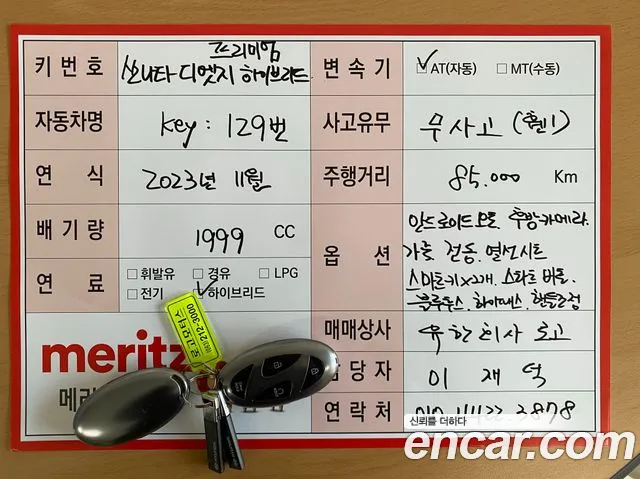 프리미엄
키 번호 쏘나타 디엣지 하이브리드
변 속 기 ✓ AT(자동) □ MT(수동)
자동차명 key : 129번
사고유무 무사고 (휀1)
연 식 2023년 11월
주행거리 85.000 Km
배 기 량 1999 CC
옵 션 안드로이드오토. 후방카메라.
가죽 전동. 열선시트
스마트키x2개. 스마트 버튼.
블루투스. 하이패스. 핸들조정
연 료 □ 휘발유 □ 경유 □ LPG
□ 전기 ✓ 하이브리드
매매상사 유한회사 로고
로고모터스
063) 212-3000
meritz
메리
담당자 이 재 덕
연 락 처 010
3878
신뢰를 더하다
encar.com